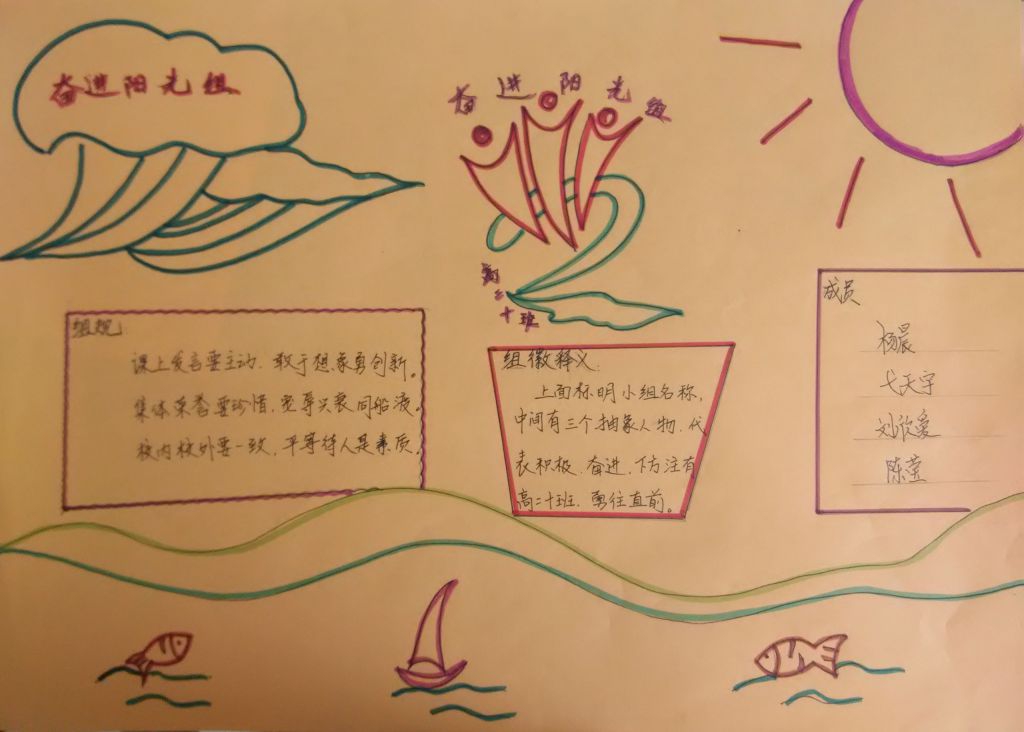 奋进阳光组
奋进阳光组
高二十班
组规:
课上发言要主动.敢于想象勇创新。
集体荣誉要珍惜.宽辱兴衰同船渡。
校内校外要一致.平等待人是素质.
组徽释义:
上面标明小组名称,
中间有三个抽象人物.代
表积极.奋进.下方注有
高二十班.勇往直前。
成员
杨晨
弋天宇
刘欣爱
陈莹